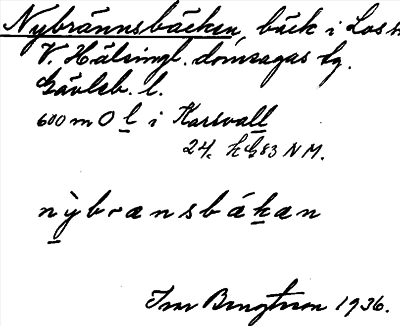 Nybrännsbäcken, bäck i Los
V. Hälsingl. domsagas tg.
Gävleb. l.
600 m O l i Karsvall
24. NM.
nỳbransbákan
Ivar Bengtsson 1936.